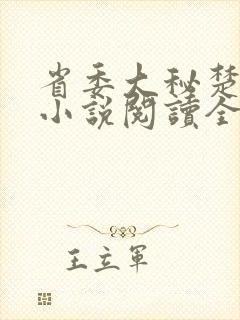 省委大秘楚
小說閱讀全
王立軍